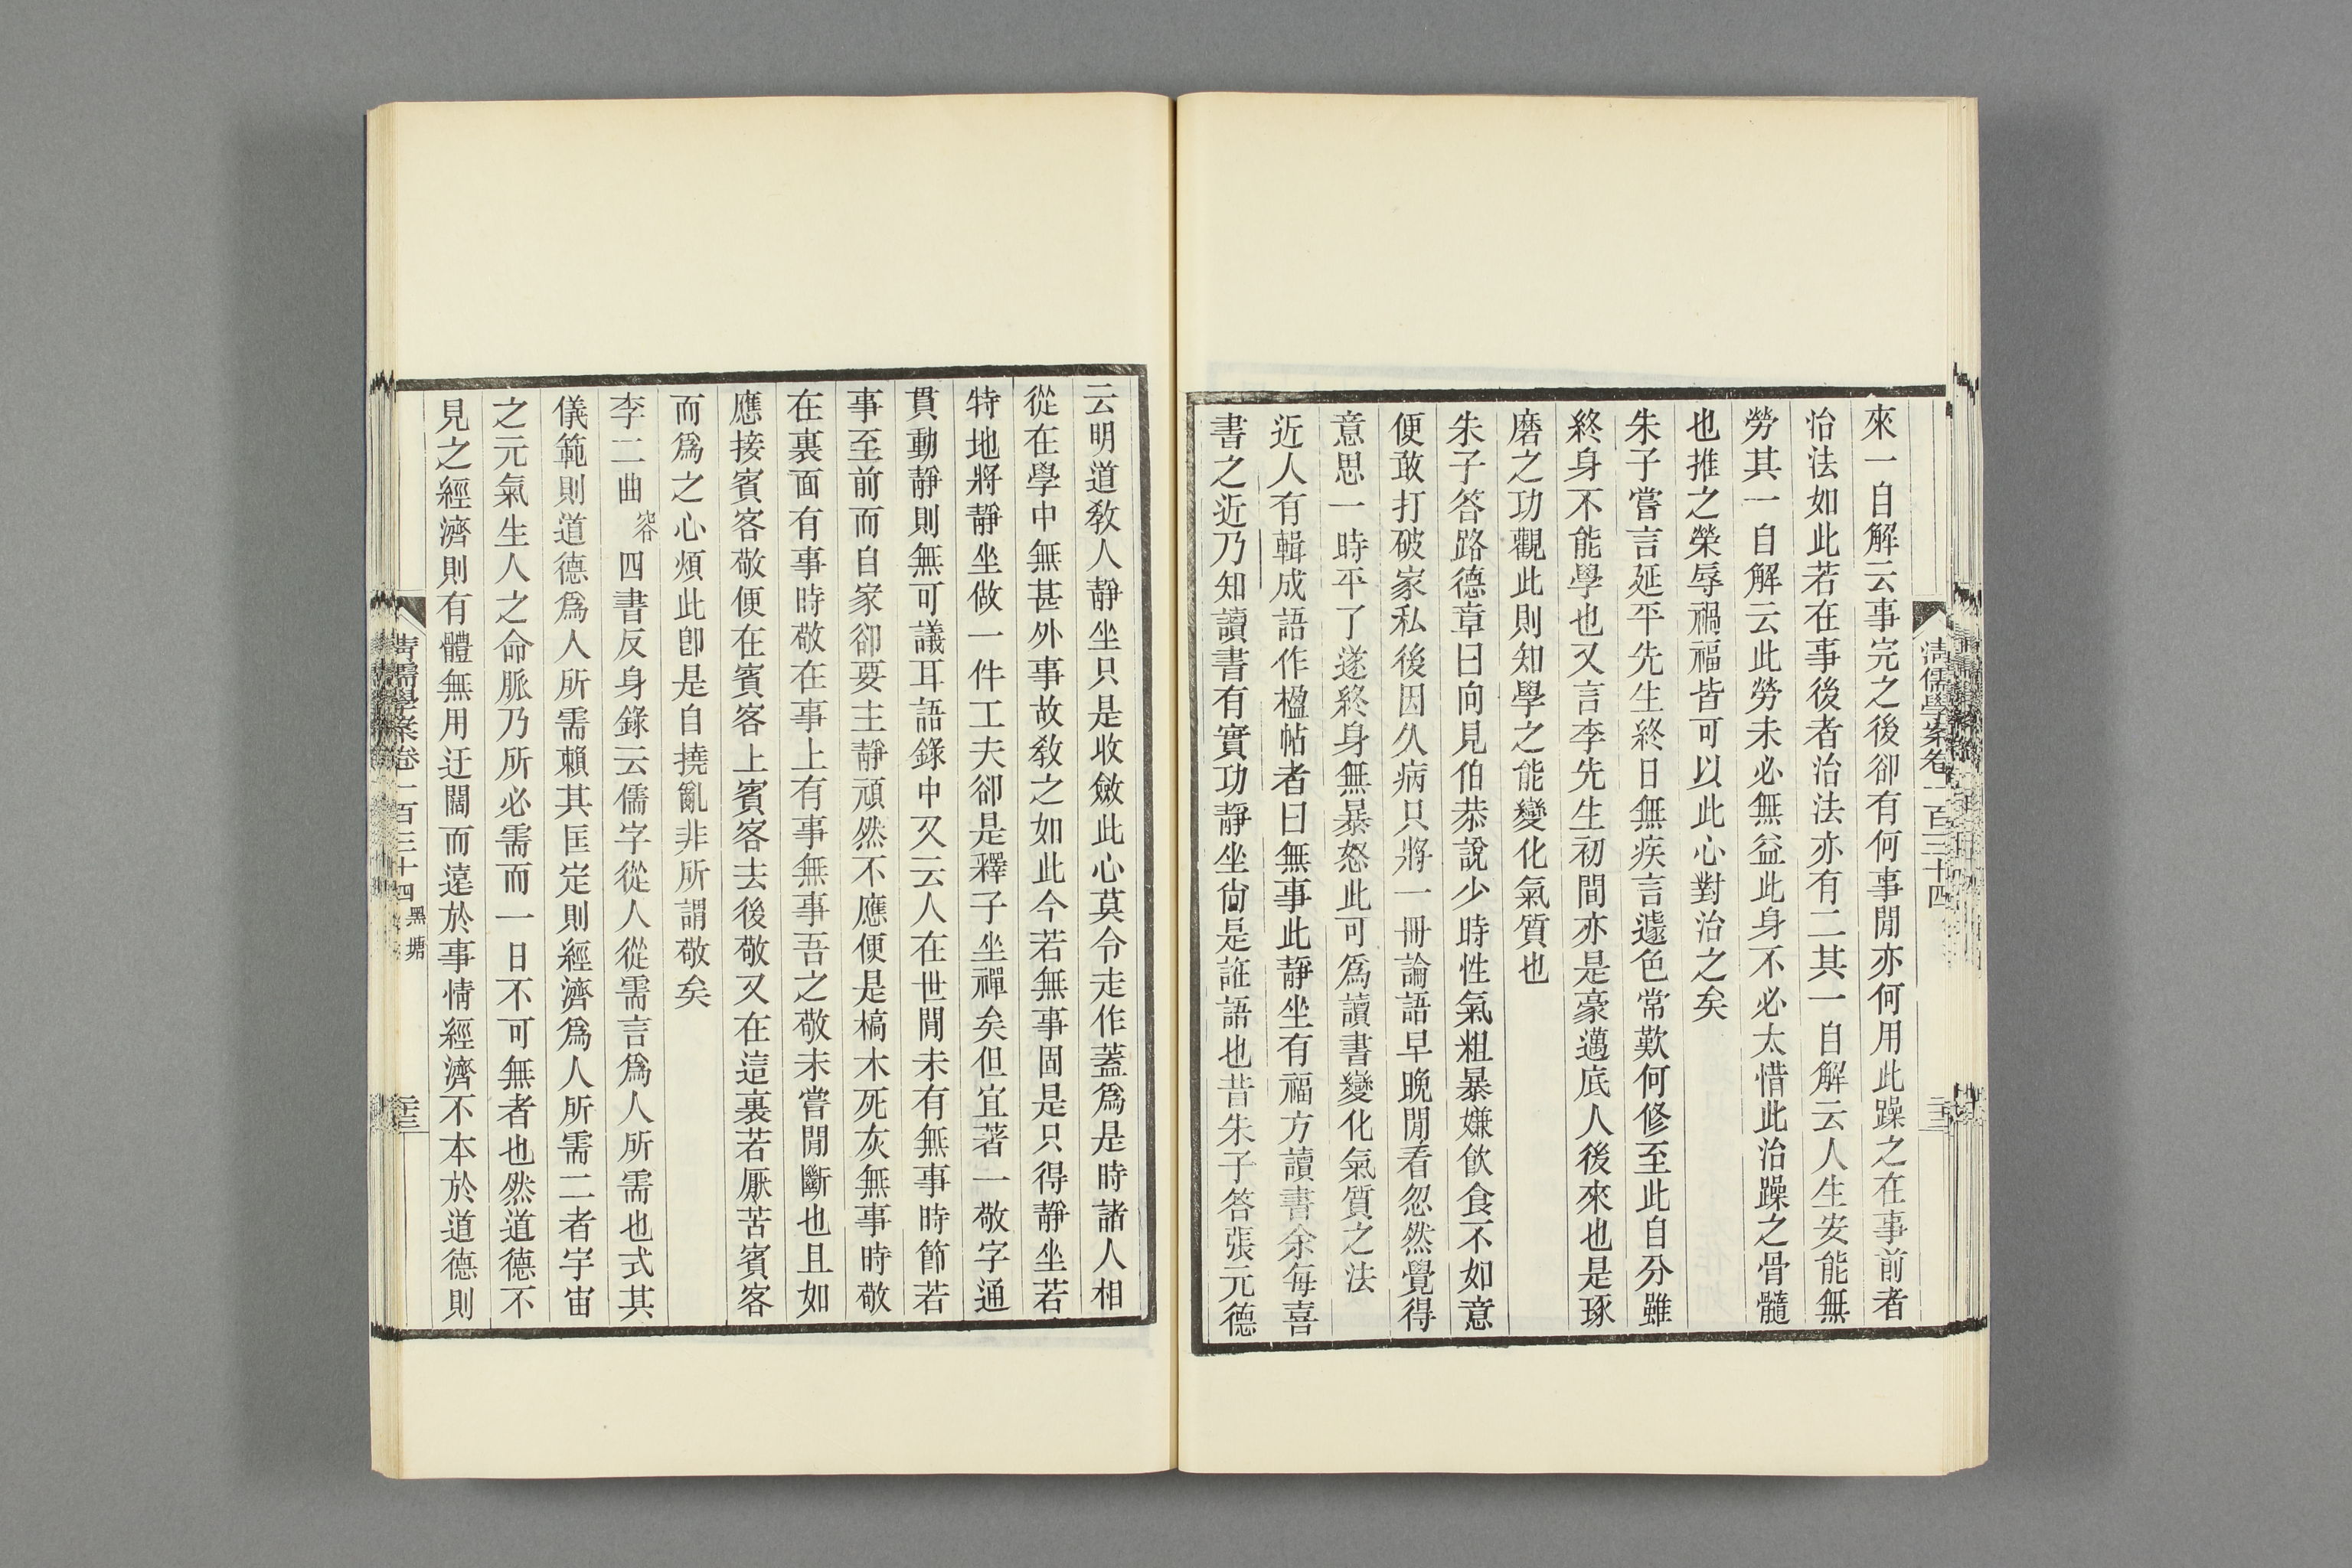 清儒學案卷一百三十四
來一自解云事完之後卻有何事閒亦何用此躁之在事前者
治法如此若在事後者治法亦有二其一自解云人生安能無
勞其一自解云此勞未必無益此身不必太惜此治躁之骨髓
也推之榮辱禍福皆可以此心對治之矣
朱子嘗言延平先生終日無疾言遽色常歎何修至此自分雖
終身不能學也又言李先生初間亦是豪邁底人後來也是琢
磨之功觀此則知學之能變化氣質也
朱子答路德章曰向見伯恭說少時性氣粗暴嫌飲食不如意
便敢打破家私後因久病只將一冊論語早晚閒看忽然覺得
意思一時平了遂終身無暴怒此可爲讀書變化氣質之法
近人有輯成語作楹帖者曰無事此靜坐有福方讀書余每喜
書之近乃知讀書有實功靜坐尙是誑語也昔朱子答張元德
云明道敎人靜坐只是收斂此心莫令走作蓋爲是時諸人相
從在學中無甚外事故敎之如此今若無事固是只得靜坐若
特地將靜坐做一件工夫卻是釋子坐禪矣但宜著一敬字通
貫動靜則無可議耳語錄中又云人在世閒未有無事時節若
事至前而自家卻要主靜頑然不應便是槁木死灰無事時敬
在裏面有事時敬在事上有事無事吾之敬未嘗閒斷也且如
應接賓客敬便在賓客上賓客去後敬又在這裏若厭苦賓客
而爲之心煩此卽是自撓亂非所謂敬矣
李二曲容四書反身錄云儒字從人從需言爲人所需也式其
儀範則道德爲人所需賴其匡定則經濟爲人所需二者宇宙
之元氣生人之命脈乃所必需而一日不可無者也然道德不
見之經濟則有體無用迂闊而遠於事情經濟不本於道德則
清儒學案卷一百三十四 黑塘